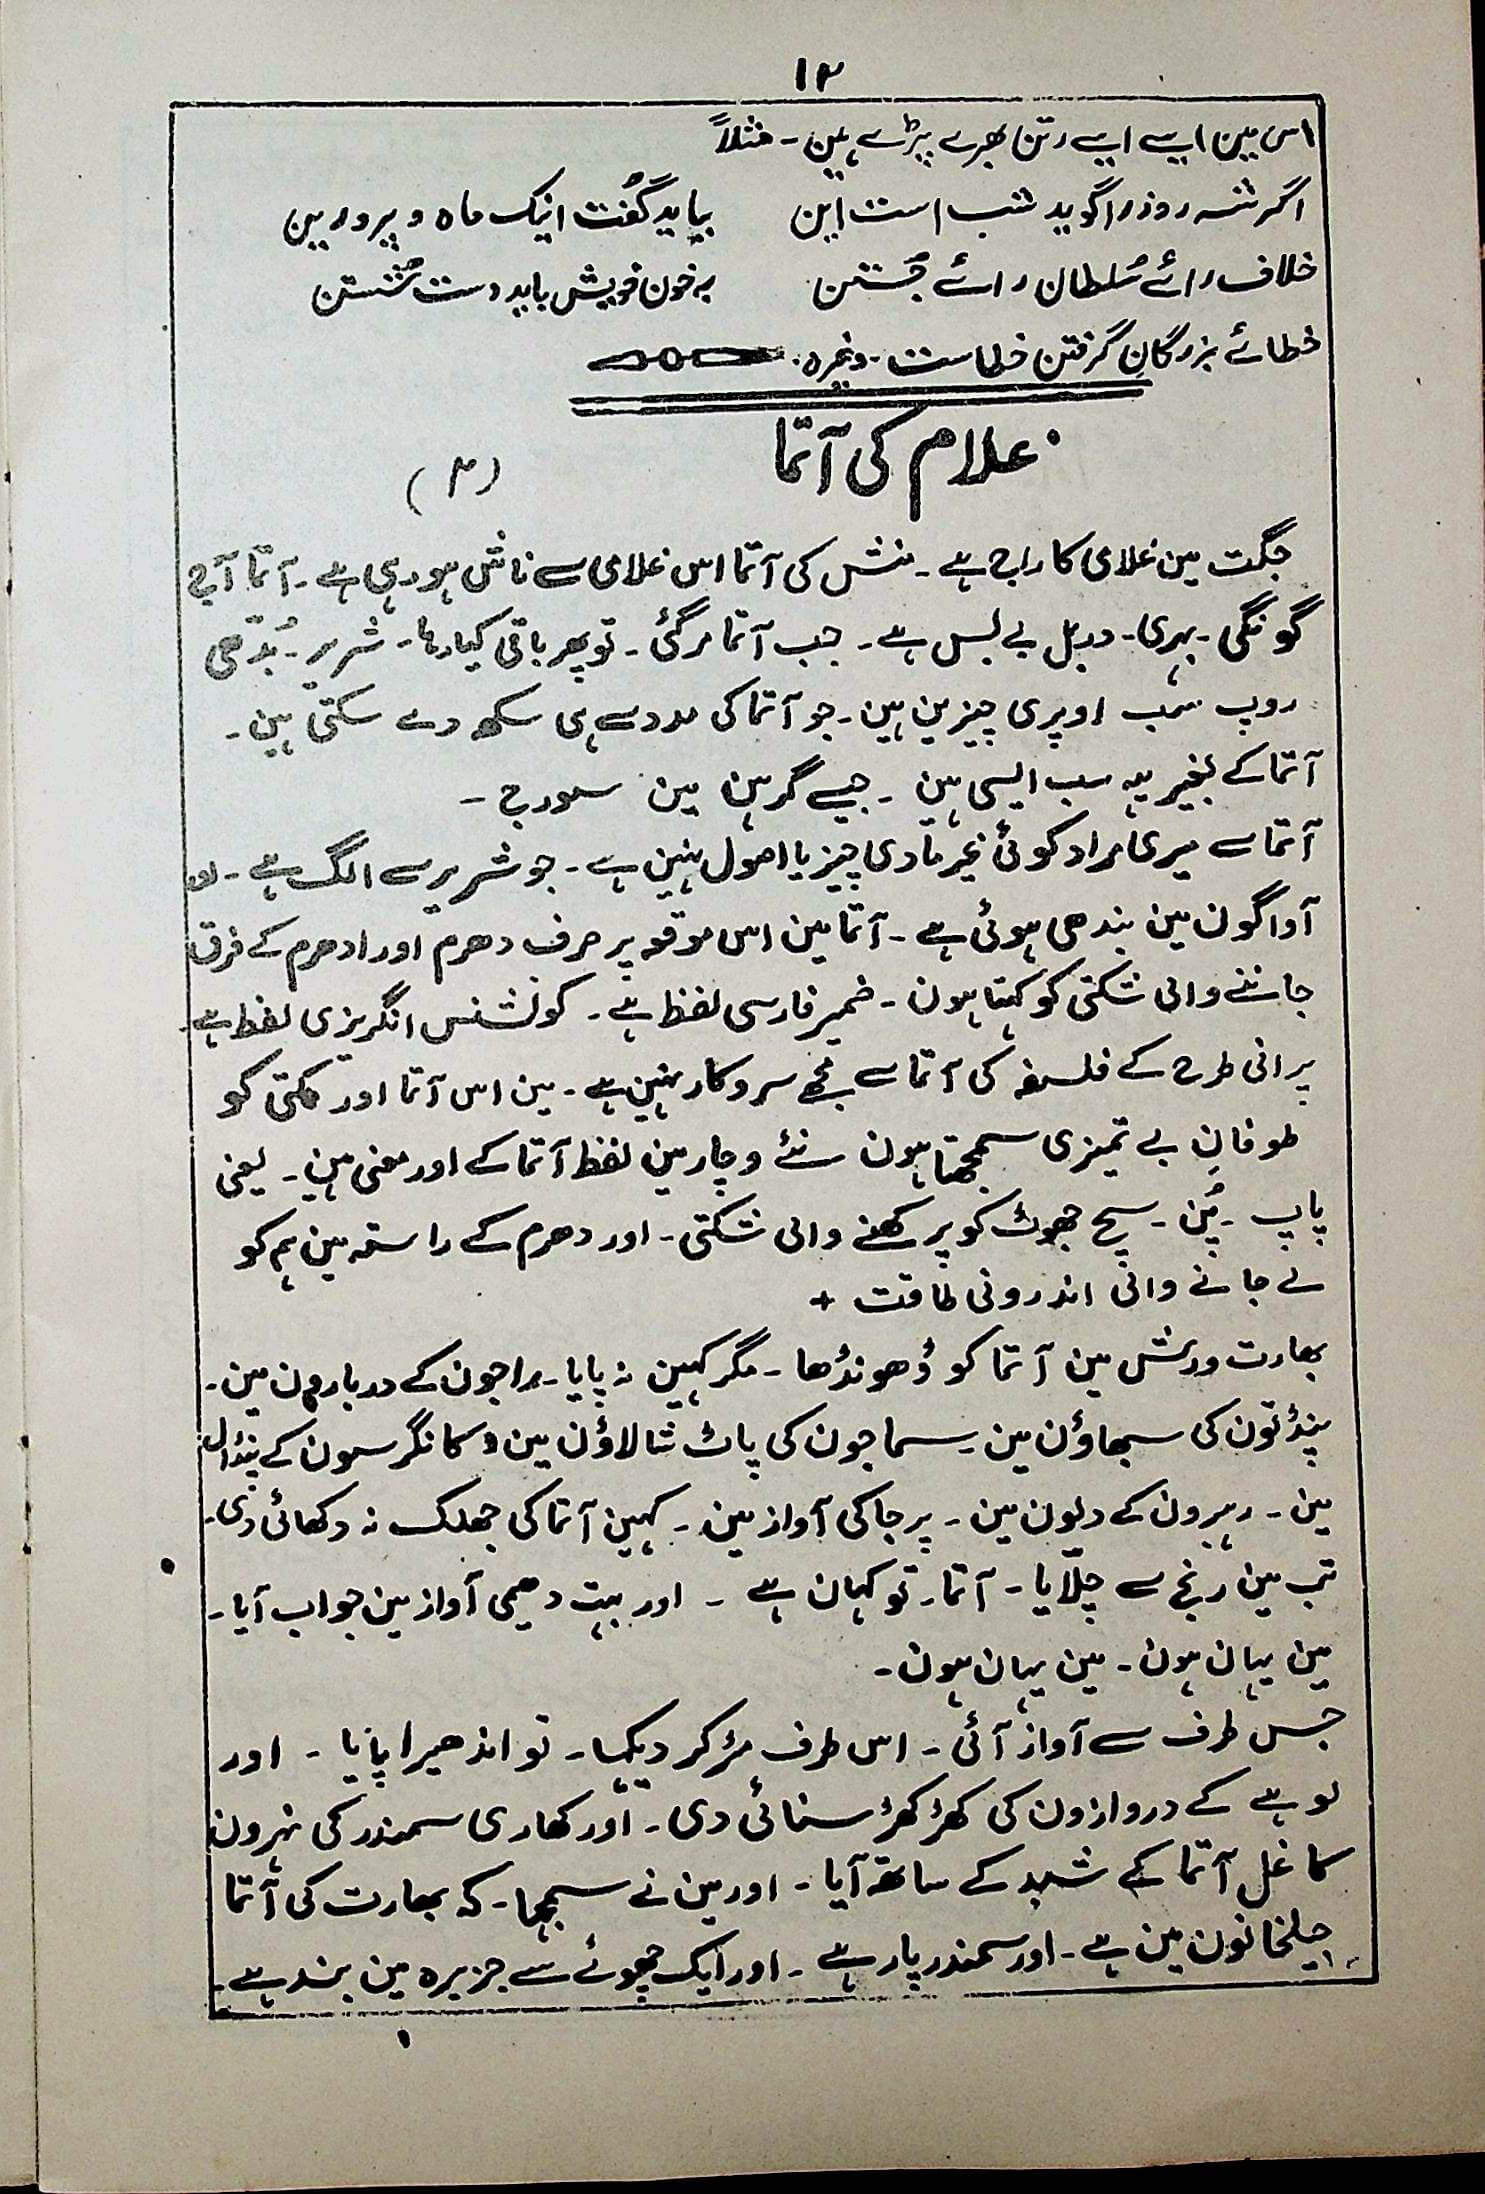 ۱۲
اس مین ایسے ایسے رتن بھرے پڑے ہین - مثلاً
اگر شہ روز را گوید شب است این بباید گفت اینک ماہ و پروین
خلاف رائے سُلطان رائے جُستن بہ خون خویش باید دست شُستن
خطائے بزرگان گرفتن خطاست - وغیرہ
غلام کی آتما (۴)
جگت مین غلامی کا راج ہے - منش کی آتما اس غلامی سے ناش ہو رہی ہے - آتما آج
گونگی - بہری - دربل بے بس ہے - جب آتما مر گئی - تو پھر باقی کیا رہا - شریر - بُدّھی
روپ سب اوپری چیزین ہین - جو آتما کی مدد سے ہی سکھ دے سکتی ہین -
آتما کے بغیر یہ سب ایسی ہین - جیسے گرہن مین سورج -
آتما سے میری مراد کوئی غیر مادی چیز یا اصول نہین ہے - جو شریر سے الگ ہے - اور
آواگون مین بندھی ہوئی ہے - آتما مین اس موقعہ پر صرف دھرم اور ادھرم کے فرق
جاننے والی شکتی کو کہتا ہون - ضمیر فارسی لفظ ہے - کونشنس انگریزی لفظ ہے -
پرانی طرح کے فلسفہ کی آتما سے مجھے سروکار نہین ہے - مین اس آتما اور مکتی کو
طوفانِ بے تمیزی سمجھتا ہون نئے وچار مین لفظ آتما کے اور معنی ہین - یعنی
پاپ - پُن - سچ جھوٹ کو پرکھنے والی شکتی - اور دھرم کے راستہ مین ہم کو
لے جانے والی اندرونی طاقت +
بھارت ورش مین آتما کو ڈھونڈھا - مگر کہین نہ پایا - راجون کے دربارون مین -
پنڈتون کی سبھاؤن مین - سماجون کی پاٹ شالاؤن مین - کانگرسون کے پنڈال
مین - رہبرون کے دلون مین - پرجا کی آواز مین - کہین آتما کی جھلک نہ دکھائی دی -
تب مین رنج سے چلّایا - آتما - تو کہان ہے - اور بہت دھیمی آواز مین جواب آیا -
مین یہان ہون - مین یہان ہون -
جس طرف سے آواز آئی - اس طرف مڑ کر دیکھا - تو اندھیرا پایا - اور
لوہے کے دروازون کی کھڑ کھڑ سنائی دی - اور کھاری سمندر کی لہرون
کا غل آتما کے شبد کے ساتھ آیا - اور مین نے سمجھا - کہ بھارت کی آتما
جیلخانون مین ہے - اور سمندر پار ہے - اور ایک چھوٹے سے جزیرہ مین بند ہے -